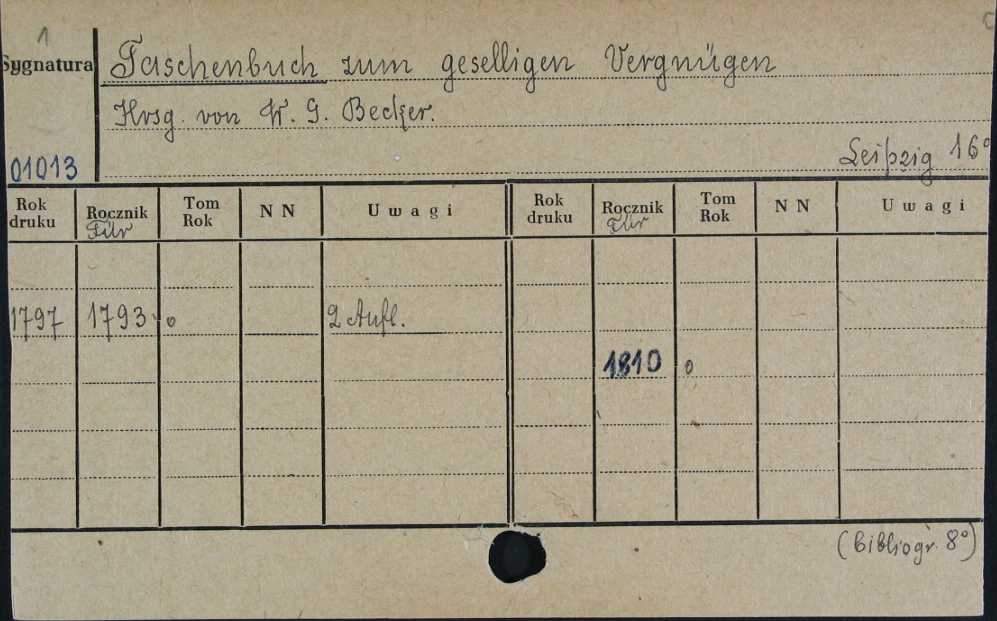 1
Sygnatura
Taschenbuch zum geselligen Vergnügen
Hrsg. von W. G. Becker.
Leipzig 16°
01013
Rok druku Rocznik Für Tom Rok NN Uwagi Rok druku Rocznik Für Tom Rok NN Uwagi
1797 1793 o 2 Aufl.
1810 o
(bibliogr. 8°)